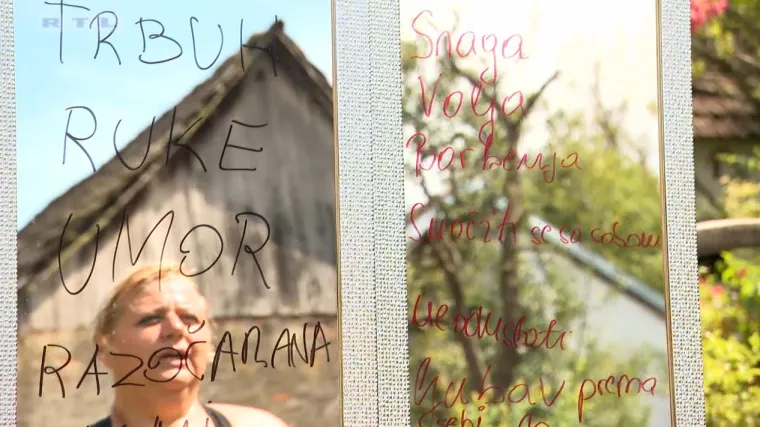 RTL
TRBUH
RUKE
UMOR
RAZOČARANA
Snaga
Volja
Borbenja
se sa sobom
Ne odustati
Ljubav prema
sebi